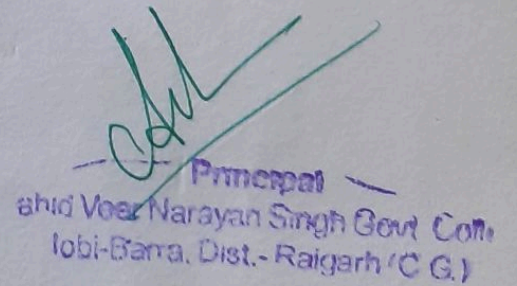 Principal
ahid Veer Narayan Singh Govt Colle
lobi-Barra, Dist.- Raigarh (C G.)